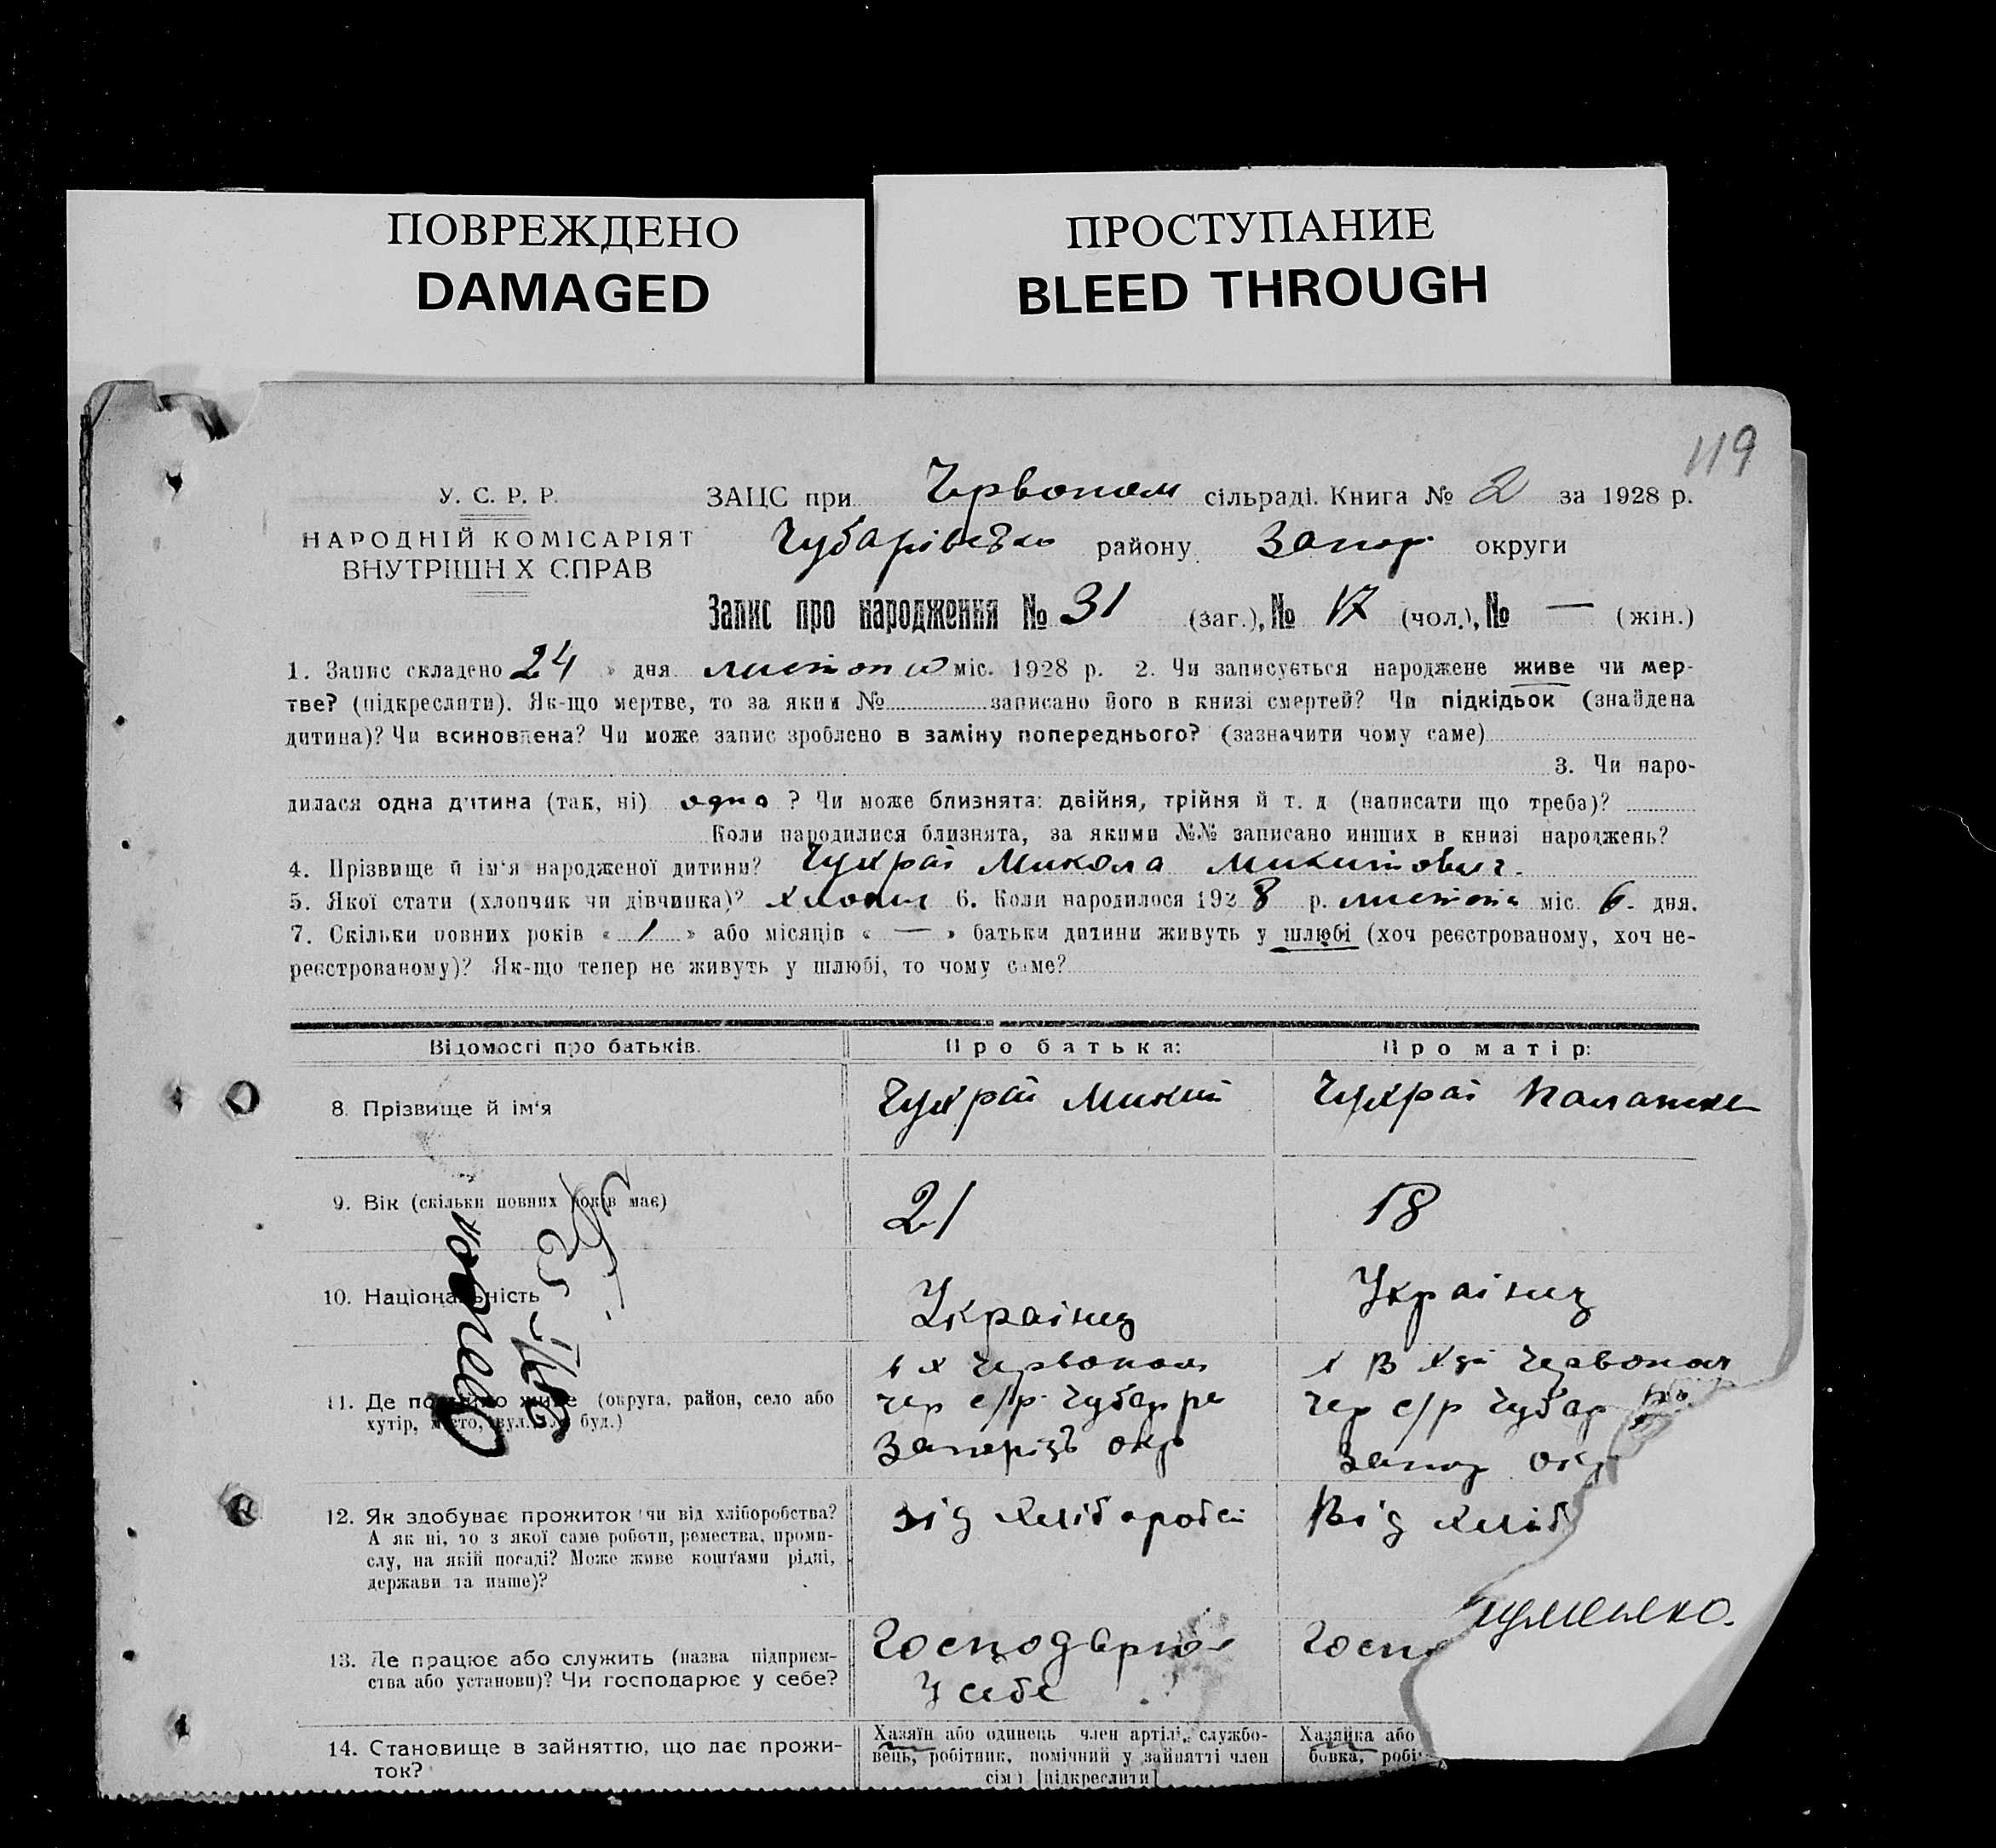 ПОВРЕЖДЕНО
DAMAGED
ПРОСТУПАНИЕ
BLEED THROUGH
119
У. С. Р. Р.
НАРОДНІЙ КОМІСАРІЯТ
ВНУТРІШНІХ СПРАВ
ЗАЦС при Червоном сільраді. Книга № 2 за 1928 р.
Чубарівсько району Запор округи
Запис про народження № 31 (заг.), № 17 (чол.), № — (жін.)
1. Запис складено 24 » дня листопа міс. 1928 р. 2. Чи записується народжене живе чи мер-
тве? (підкреслити). Як-що мертве, то за яким № записано його в книзі смертей? Чи підкідьок (знайдена
дитина)? Чи всиновлена? Чи може запис зроблено в заміну попереднього? (зазначити чому саме)
3. Чи наро-
дилася одна дитина (так, ні) одна ? Чи може близнята: двійня, трійня й т. д (написати що треба)?
Коли народилися близнята, за якими №№ записано инших в книзі народжень?
4. Прізвище й ім'я народженої дитини? Чухраі Микола Микитович.
5. Якої стати (хлопчик чи дівчинка)? хлопч 6. Коли народилося 1928 р. листопа міс. 6. дня.
7. Скільки повних років « 1 » або місяців « — » батьки дитини живуть у шлюбі (хоч реєстрованому, хоч не-
реєстрованому)? Як-що тепер не живуть у шлюбі, то чому саме?
Відомості про батьків. Про батька: Про матір:
8. Прізвище й ім'я Чухраі Микит Чухраі Палажке
9. Вік (скільки повних років має) 21 18
10. Національність Украінец Украінец
11. Де постійно живе (округа, район, село або
хутір, місто, вул. або буд.)
х Червоном
чер с/р Чубар ра
Запоріз окр
х В Червоном
Чер с/р Чубар
Запор окр
12. Як здобуває прожиток чи від хліборобства?
А як ні, то з якої саме роботи, ремества, проми-
слу, на якій посаді? Може живе коштами рідні,
держави та инше)?
від хліборобст
Від хліб
13. Де працює або служить (назва підприєм-
ства або установи)? Чи господарює у себе?
Господарює
У себе
Госп
уменько.
14. Становище в зайняттю, що дає прожи-
ток?
Хазяїн або одинець член артілі, службо-
вець, робітник, помічний у зайнятті член
сім'ї [підкреслити]
Хазяйка або
бовка, робі